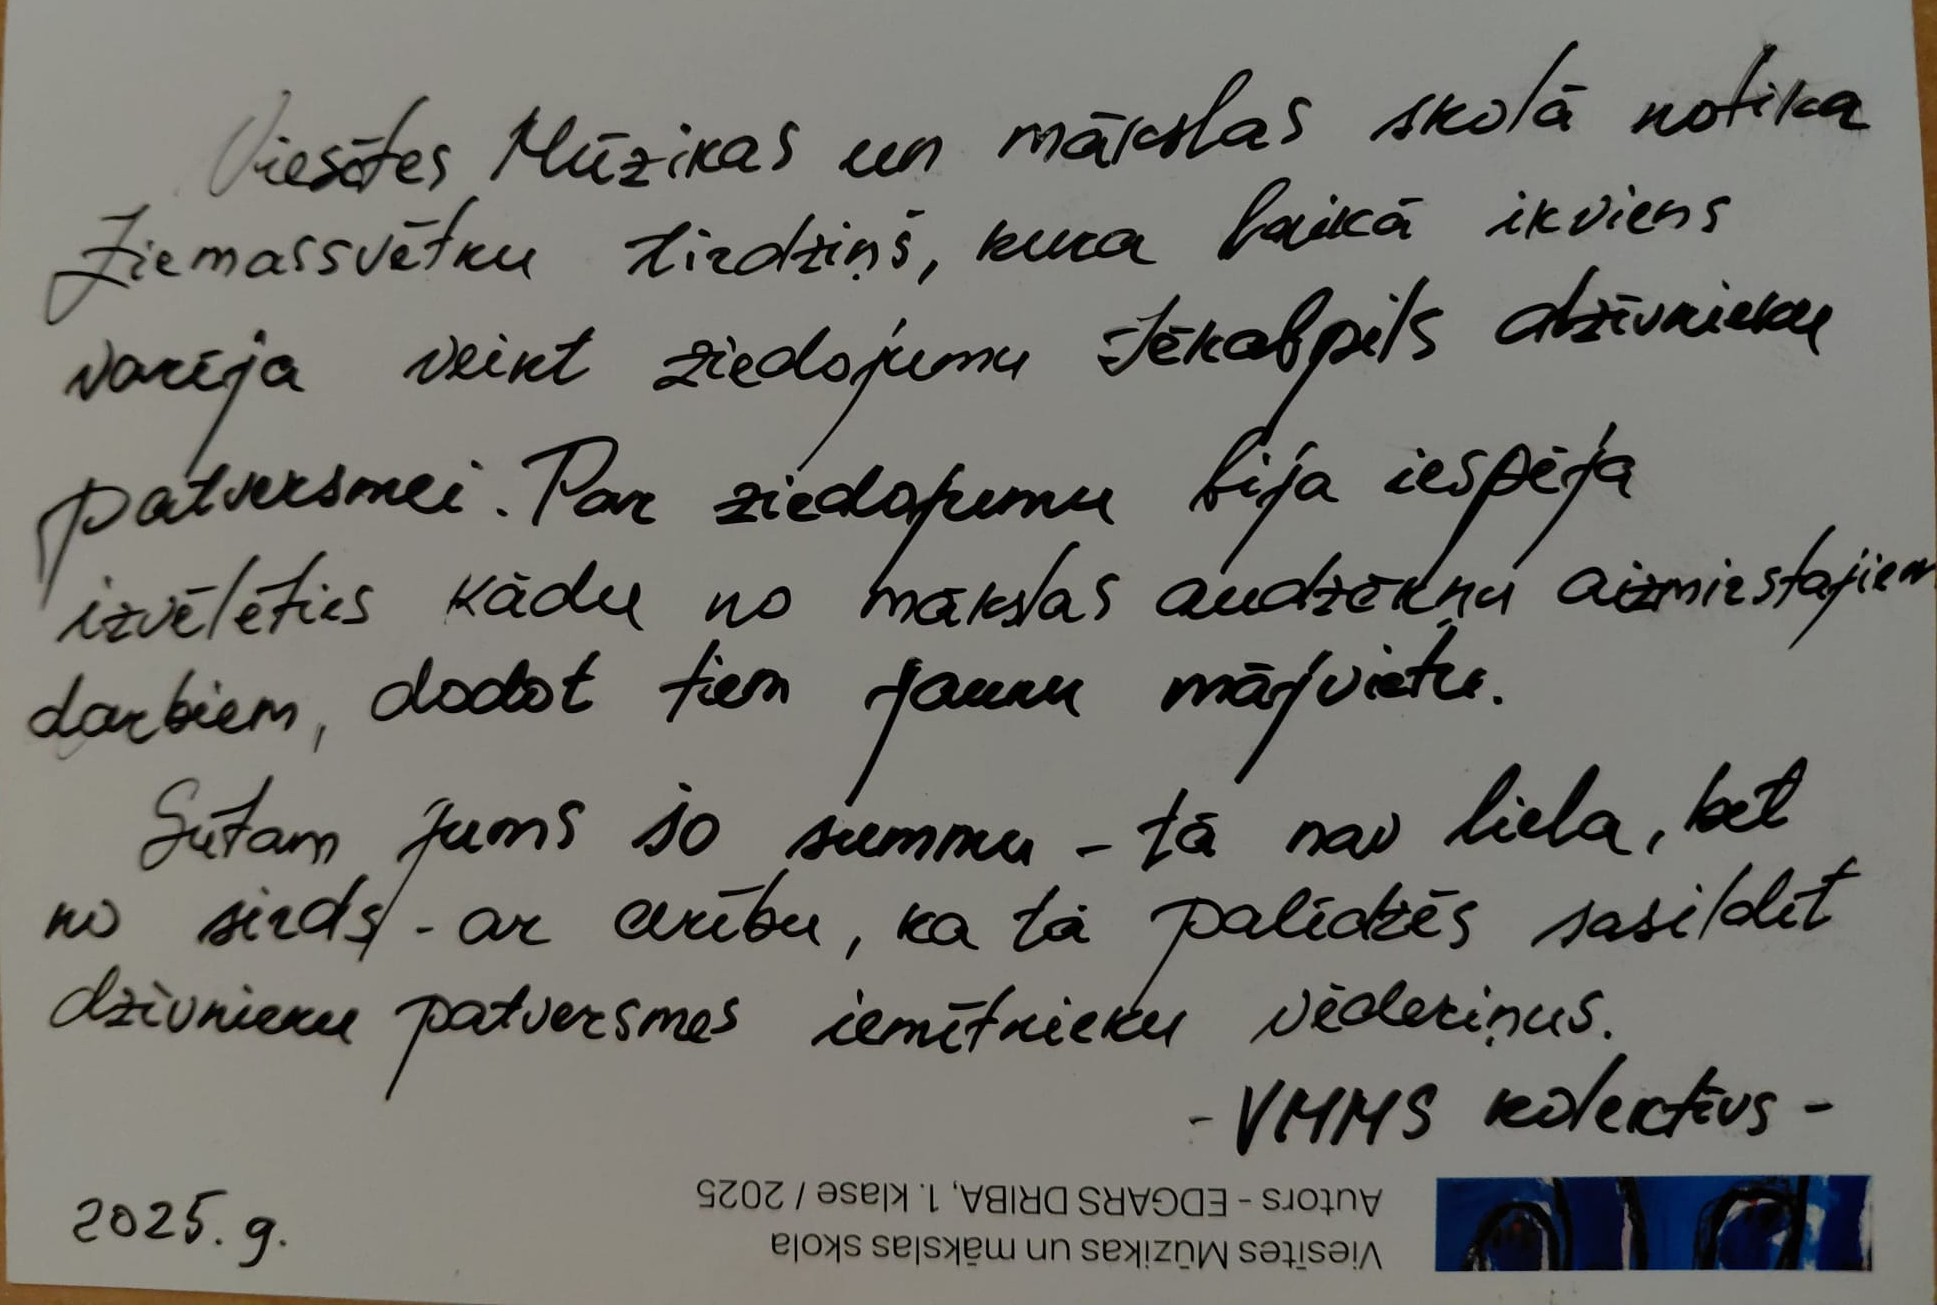 Viesītes Mūzikas un mākslas skolā notika
Ziemassvētku tirdziņš, kura laikā ikviens
varēja veikt ziedojumu Jēkabpils dzīvnieku
patversmei. Par ziedojumu bija iespēja
izvēlēties kādu no mākslas audzēkņu aizmirstajiem
darbiem, dodot tiem jaunu mājvietu.
Sūtam jums šo summu - tā nav liela, bet
no sirds - ar cerību, ka tā palīdzēs sasildīt
dzīvnieku patversmes iemītnieku vēderiņus.
- VMMS kolektīvs -
2025. g.
Viesītes Mūzikas un mākslas skola
Autors - EDGARS DRIBA, 1. klase / 2025